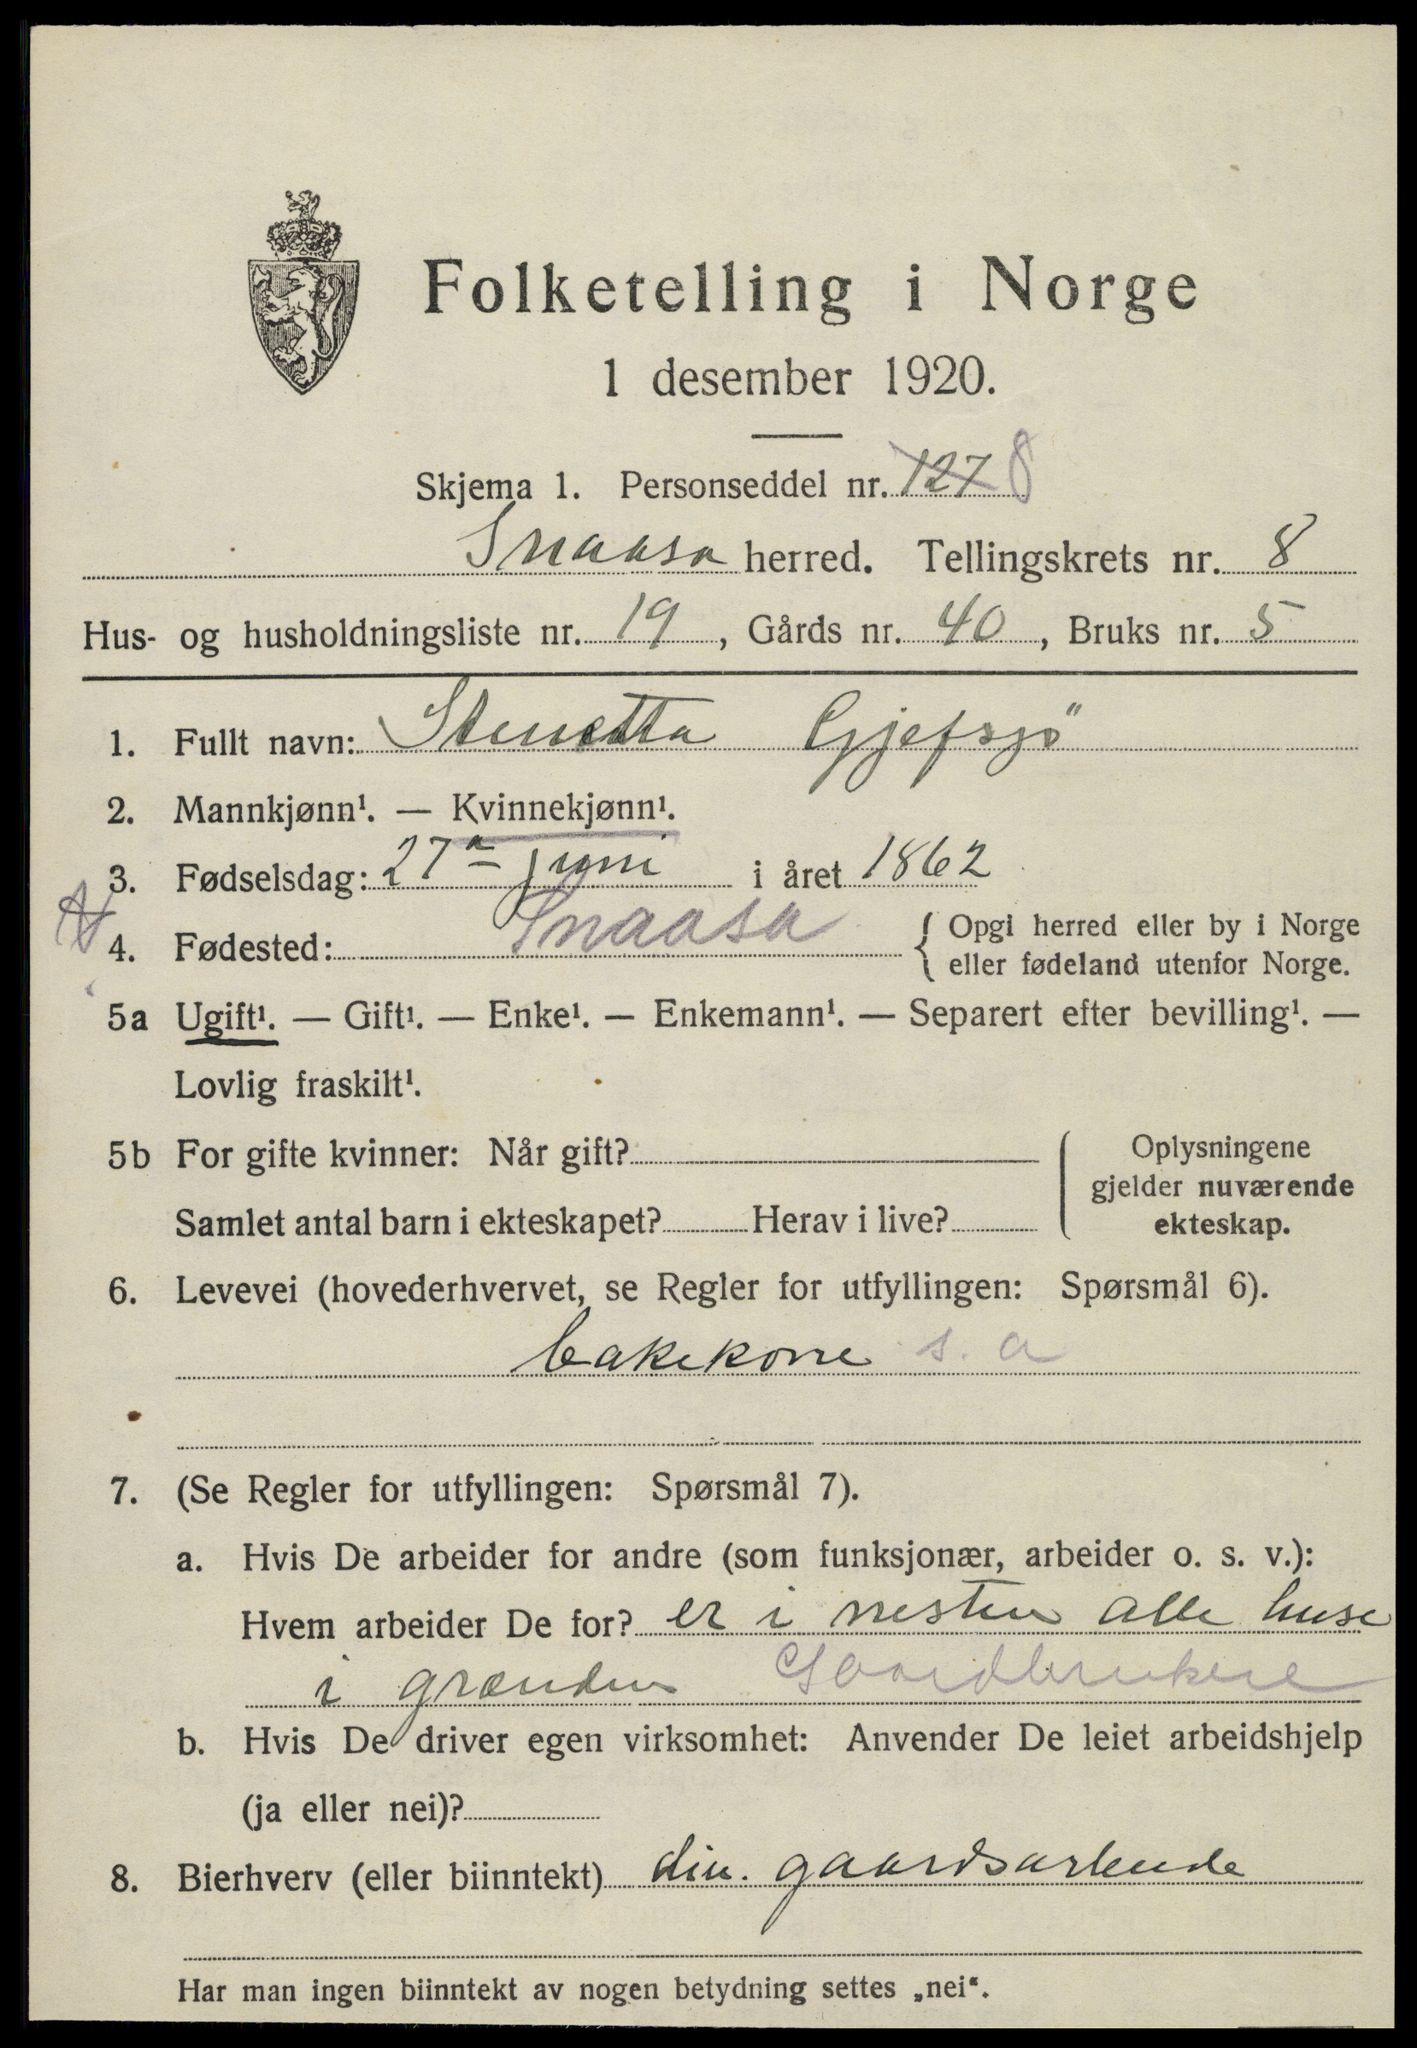 Folketelling i Norge
1 desember 1920.
Skjema 1. Personseddel nr. 127 8
Snaasa herred. Tellingskrets nr. 8
Hus- og husholdningsliste nr. 19, Gårds nr. 40, Bruks nr. 5
1. Fullt navn: Stenetta Gjefsjö
2. Mannkjønn¹. — Kvinnekjønn¹.
3. Fødselsdag: 27 juni i året 1862
4. Fødested: Snaasa { Opgi herred eller by i Norge
eller fødeland utenfor Norge.
5a Ugift¹. — Gift¹. — Enke¹. — Enkemann¹. — Separert efter bevilling¹. —
Lovlig fraskilt¹.
5b For gifte kvinner: Når gift?
Samlet antal barn i ekteskapet? Herav i live?
Oplysningene
gjelder nuværende
ekteskap.
6. Levevei (hovederhvervet, se Regler for utfyllingen: Spørsmål 6).
bakekone s. a
7. (Se Regler for utfyllingen: Spørsmål 7).
a. Hvis De arbeider for andre (som funksjonær, arbeider o. s. v.):
Hvem arbeider De for? er i nesten alle huse
i grænden Gaardbrukere
b. Hvis De driver egen virksomhet: Anvender De leiet arbeidshjelp
(ja eller nei)?
8. Bierhverv (eller biinntekt) div. gaardsarbeide
Har man ingen biinntekt av nogen betydning settes „nei“.